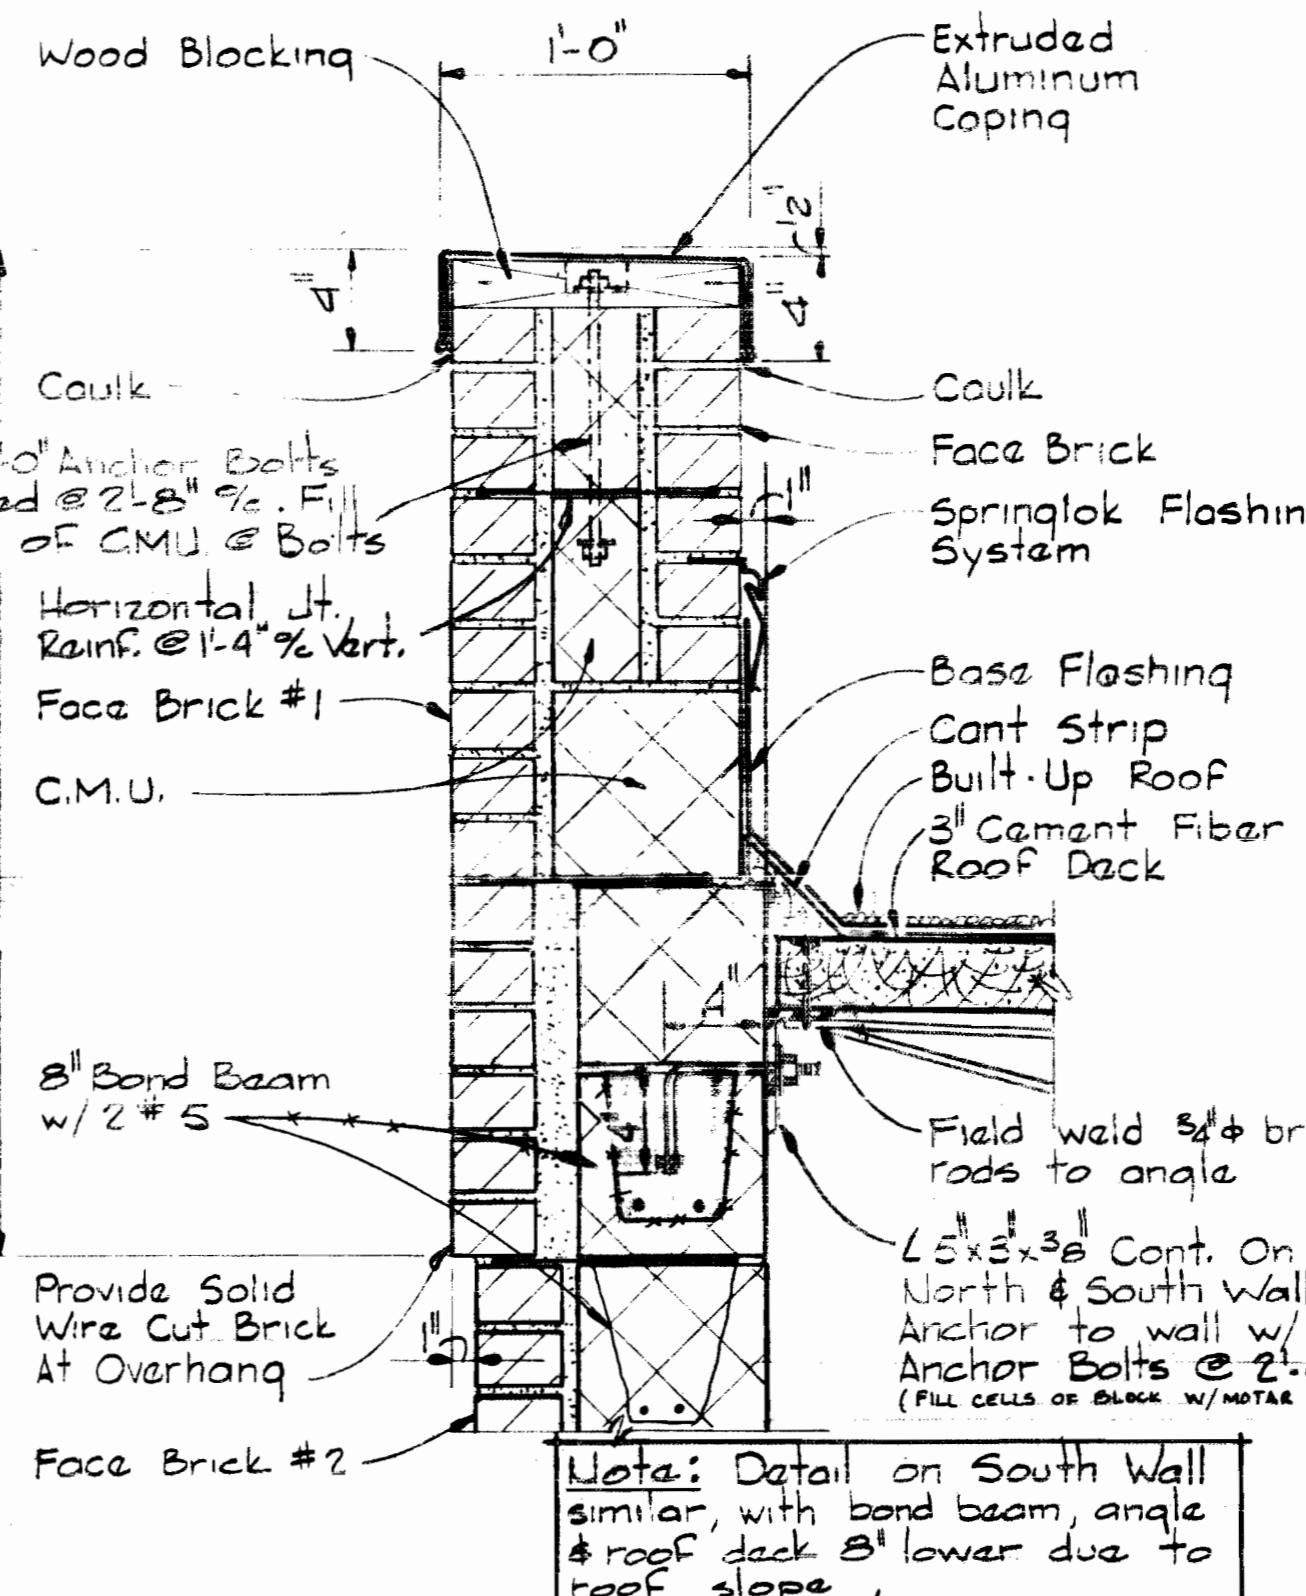 Wood Blocking
1'-0"
Extruded
Aluminum
Coping
1/2"
4"
4"
Caulk
Caulk
Face Brick
-0" Anchor Bolts
ed @ 2'-8" o/c. Fill
of C.M.U. @ Bolts
1"
Springlok Flashin
System
Horizontal Jt.
Reinf. @ 1'-4" o/c Vert.
Face Brick #1
C.M.U.
Base Flashing
Cant Strip
Built-Up Roof
3" Cement Fiber
Roof Deck
4"
8" Bond Beam
w/ 2 # 5
4"
Field weld 3/4" ф br
rods to angle
L 5"x3"x3/8" Cont. On
North & South Wall
Anchor to wall w/
Anchor Bolts @ 2'-
(FILL CELLS OF BLOCK W/ MOTAR
Provide Solid
Wire Cut Brick
At Overhang
1"
Face Brick #2
Note: Detail on South Wall
similar, with bond beam, angle
& roof deck 8" lower due to
roof slope